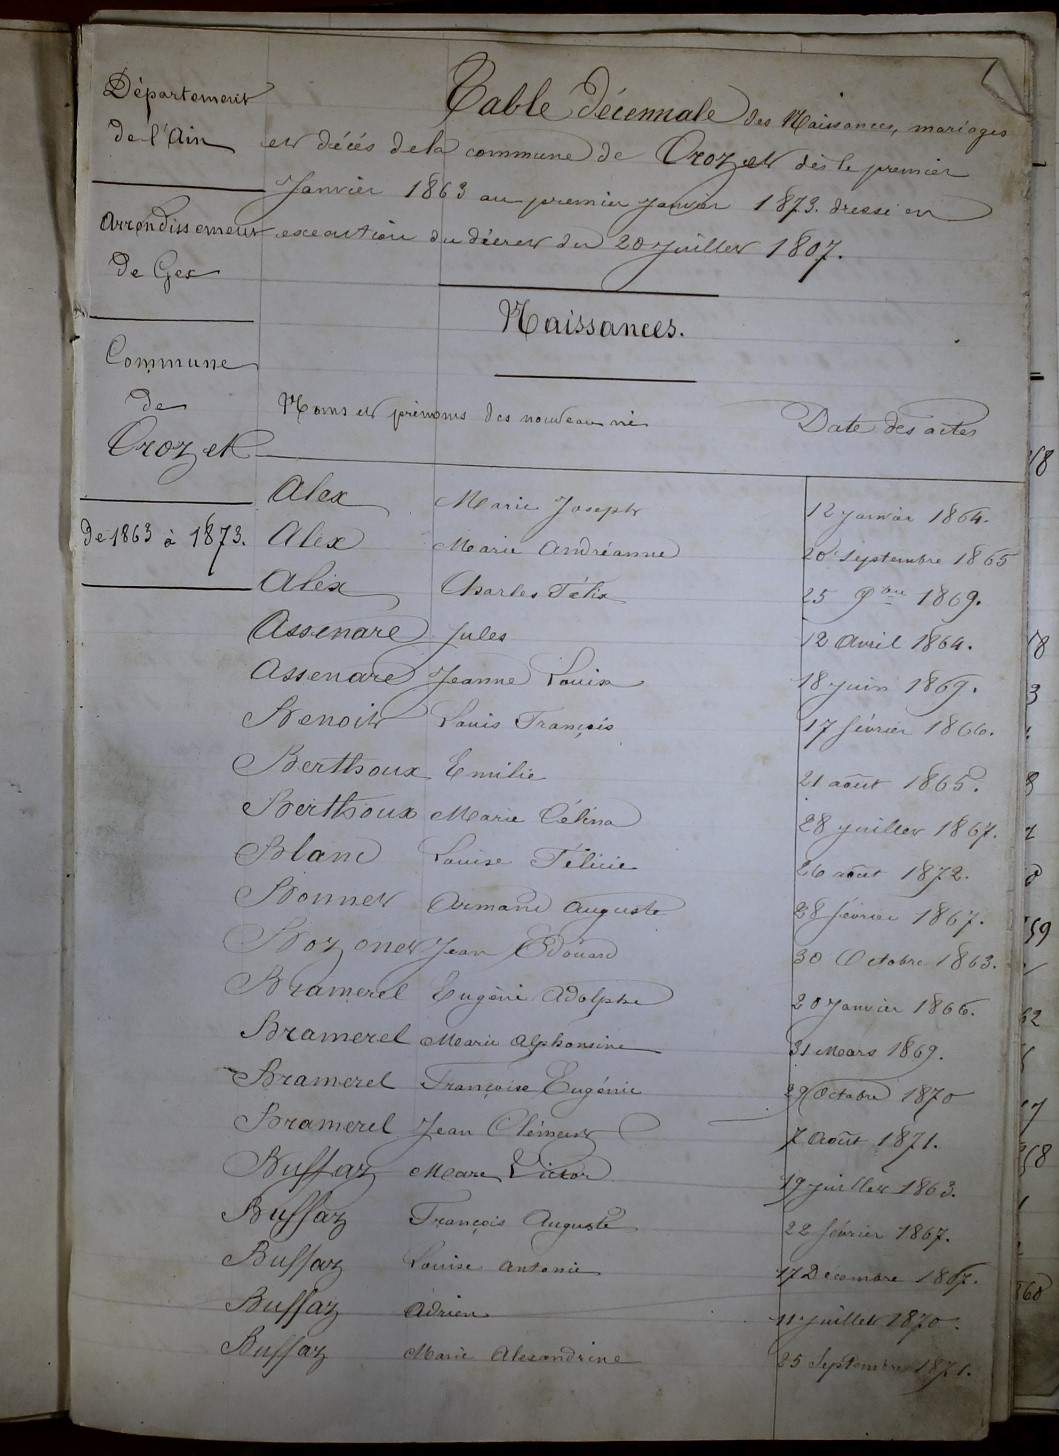 Département
de l'Ain
Arrondissement
de Gex
Commune
de
Crozet
de 1863 à 1873.
Table décennale des Naissances, mariages
et décés de la commune de Crozet dès le premier
Janvier 1863 au premier janvier 1873. dressé en
execution du décret du 20 juillet 1807.
Naissances.
Noms et prénoms des nouveau né Date des actes
Alex Marie Joseph 12 janvier 1864.
Alex Marie Andréanne 20 septembre 1865
Alex Charles Félix 25 9bre 1869.
Assenare Jules 12 Avril 1864.
Assenare Jeanne Louise 18 juin 1869.
Benoit Louis François 17 février 1866.
Berthoux Emilie 21 août 1865.
Berthoux Marie Célina 28 juillet 1867.
Blanc Louise Félicie 26 août 1872.
Bonnet Armand Auguste 28 février 1867.
Bozonet Jean Edouard 30 Octobre 1863.
Bramerel Eugène Adolphe 20 Janvier 1866.
Bramerel Marie Alphonsine 31 Mars 1869.
Bramerel Françoise Eugénie 29 Octobre 1870
Bramerel Jean Clément 7 Août 1871.
Buffaz Marc Victor 19 juillet 1863.
Buffaz François Auguste 22 février 1867.
Buffaz Louise Antonie 17 Decembre 1867.
Buffaz Adrien 11 juillet 1870.
Buffaz Marie Alexandrine 25 Septembre 1871.